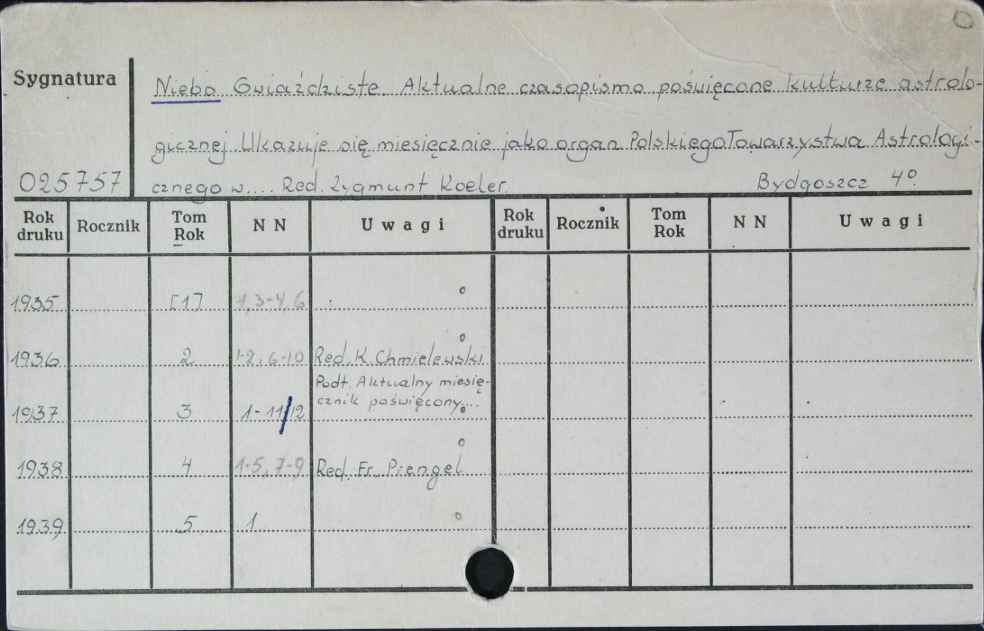 Sygnatura
Niebo Gwiaździste. Aktualne czasopismo poświęcone kulturze astrolo-
gicznej. Ukazuje się miesięcznie jako organ Polskiego Towarzystwa Astrologi-
025757 cznego w.... Red. Zygmunt Koeler. Bydgoszcz 4º
Rok druku Rocznik Tom Rok NN Uwagi Rok druku Rocznik Tom Rok NN Uwagi
1935 [1] 1,3-4,6
1936 2 1-2,6-10 Red. K. Chmielewski
Podt. Aktualny miesię-
1937 3 1-11/12 cznik poświęcony...
1938 4 1-5,7-9 Red. Fr. Prengel
1939 5 1